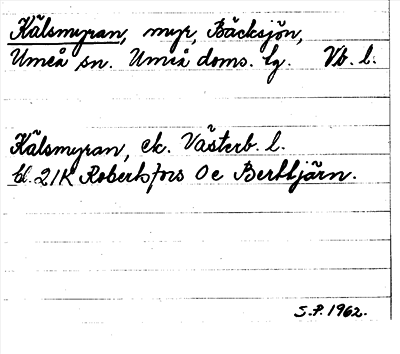 Kälsmyran, myr, Bäcksjön,
Umeå sn. Umeå doms. lg. Vb. l.
Kälsmyran, ek. Västerb. l.
bl. 21K Robertsfors 0c Berttjärn.
S.P. 1962.